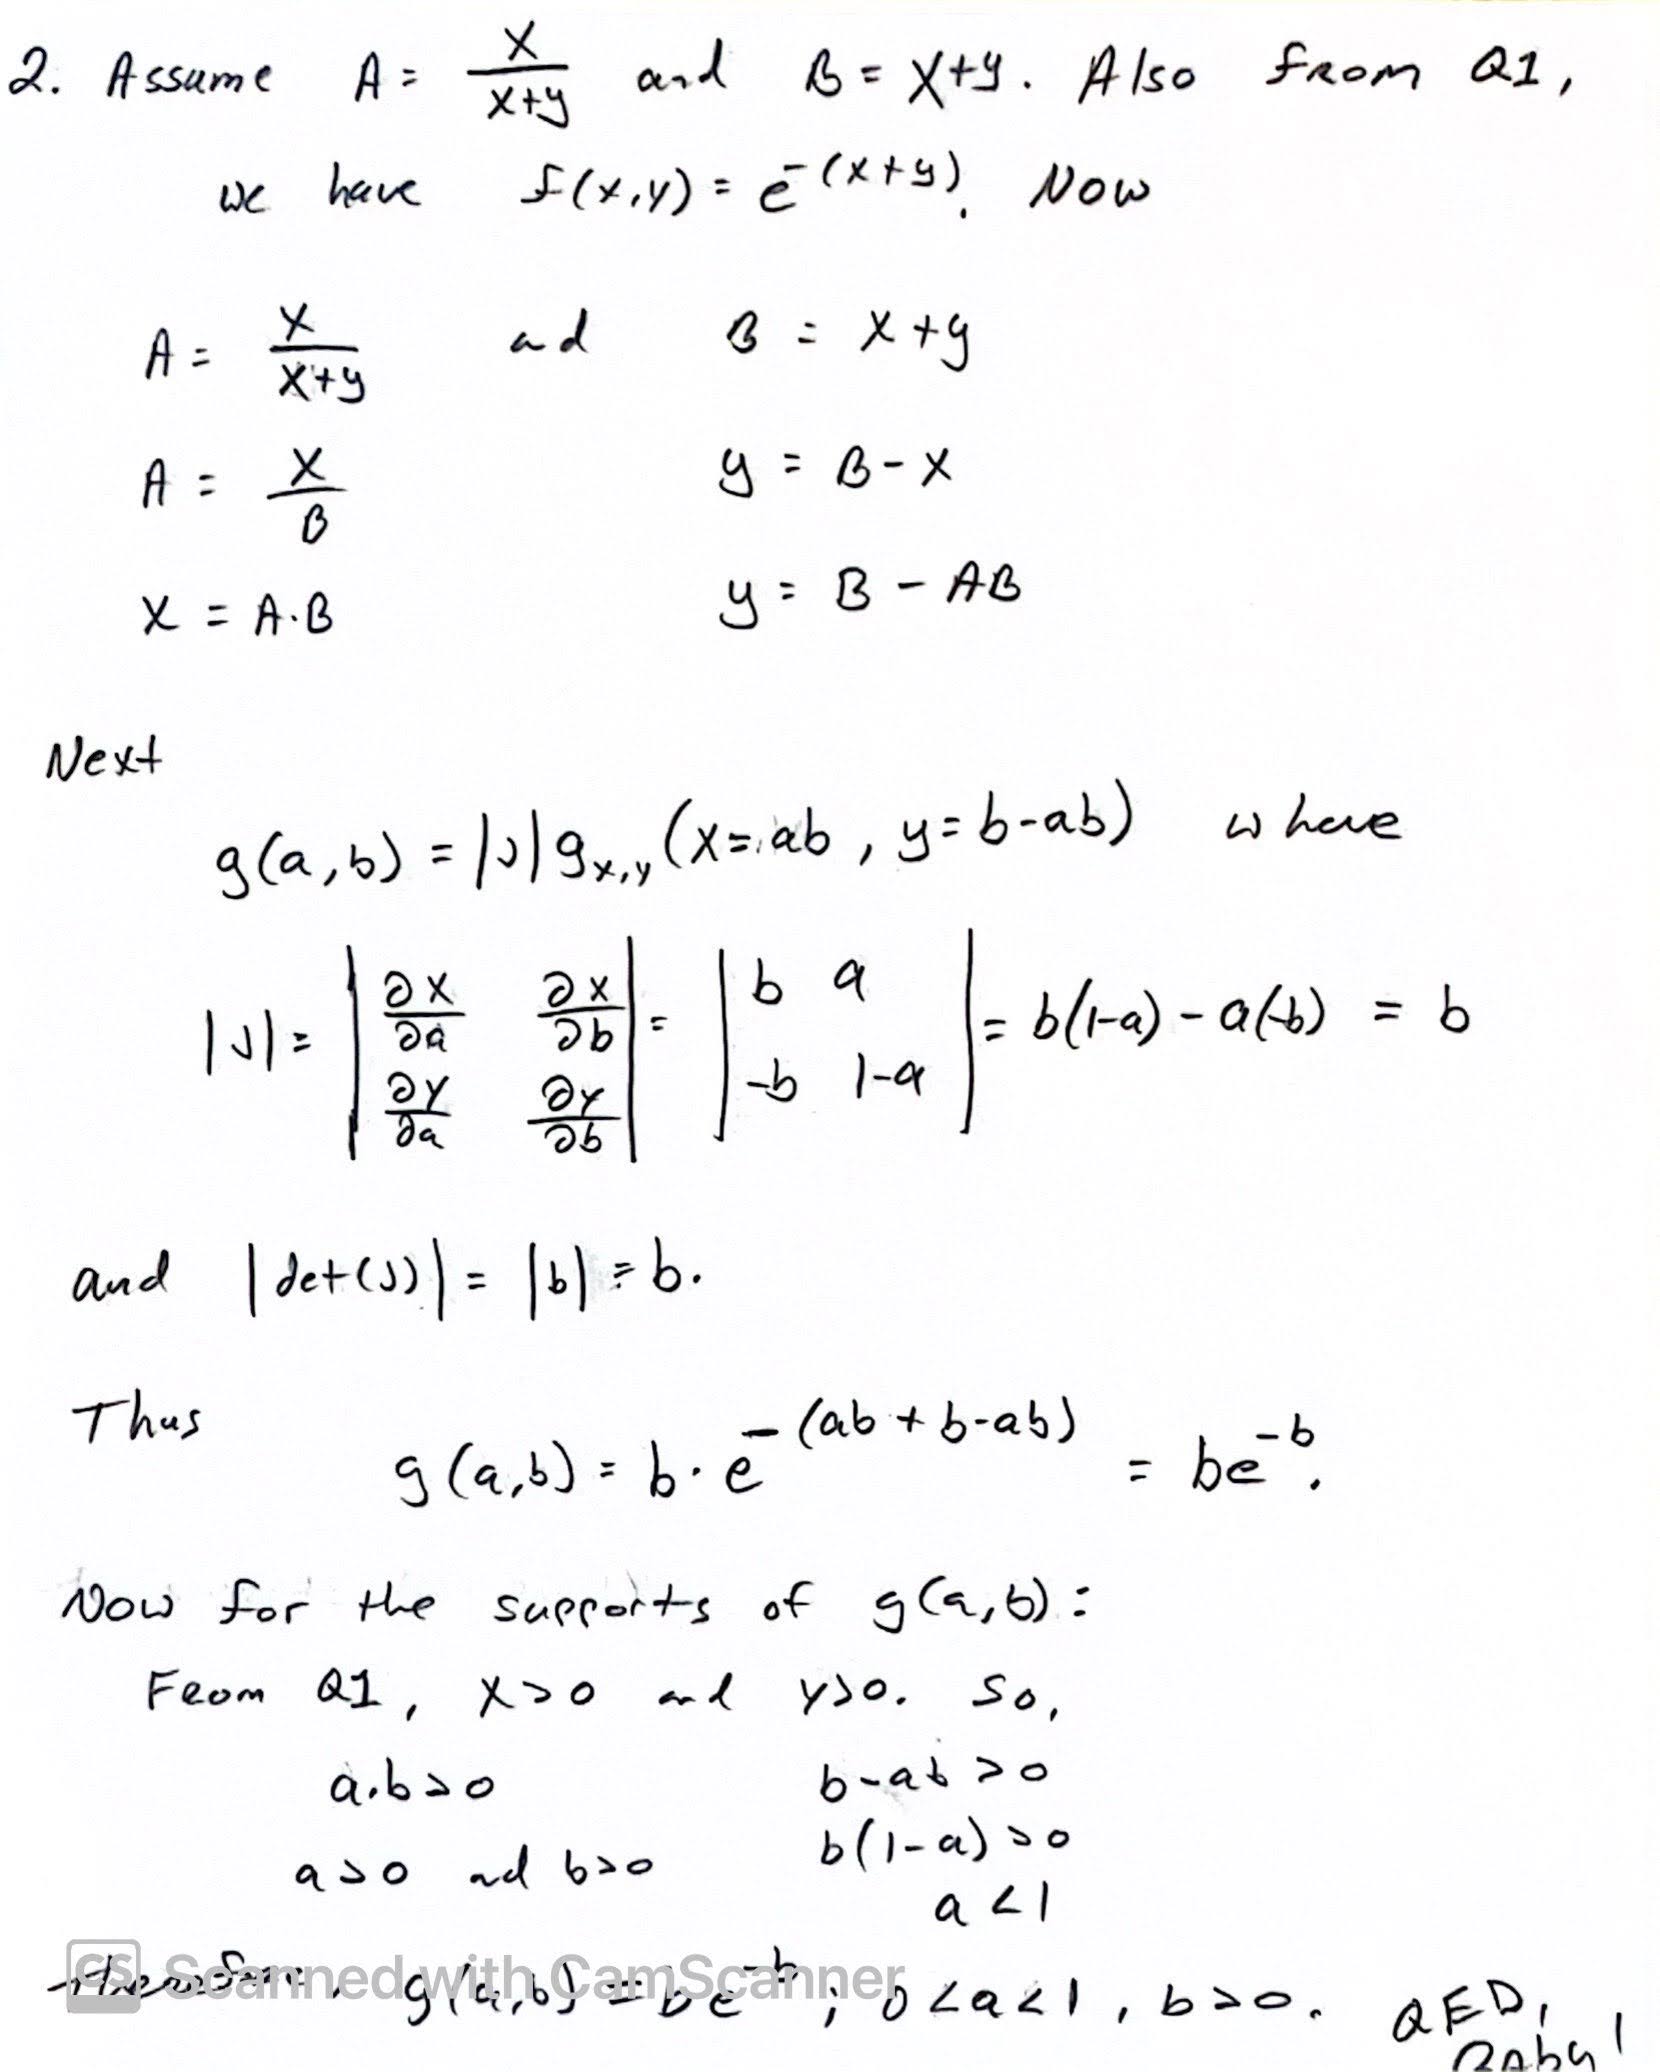 2. Assume A = x/(x+y) and B = x+y. Also from Q1,
we have f(x,y) = e^-(x+y). Now
A = x/(x+y) and B = x+y
A = x/B y = B-x
x = A·B y = B - AB
Next
g(a,b) = |J| g_x,y (x=ab, y=b-ab) where
|J| = | ∂x/∂a ∂x/∂b ; ∂y/∂a ∂y/∂b | = | b a ; -b 1-a | = b(1-a) - a(-b) = b
and |det(J)| = |b| = b.
Thus
g(a,b) = b·e^-(ab+b-ab) = be^-b.
Now for the supports of g(a,b):
From Q1, x>0 and y>0. So,
a·b>0 b-ab>0
b(1-a)>0
a>0 and b>0
a<1
therefore, g(a,b) = be^-b; 0<a<1, b>0. QED,
Baby!
CS Scanned with CamScanner